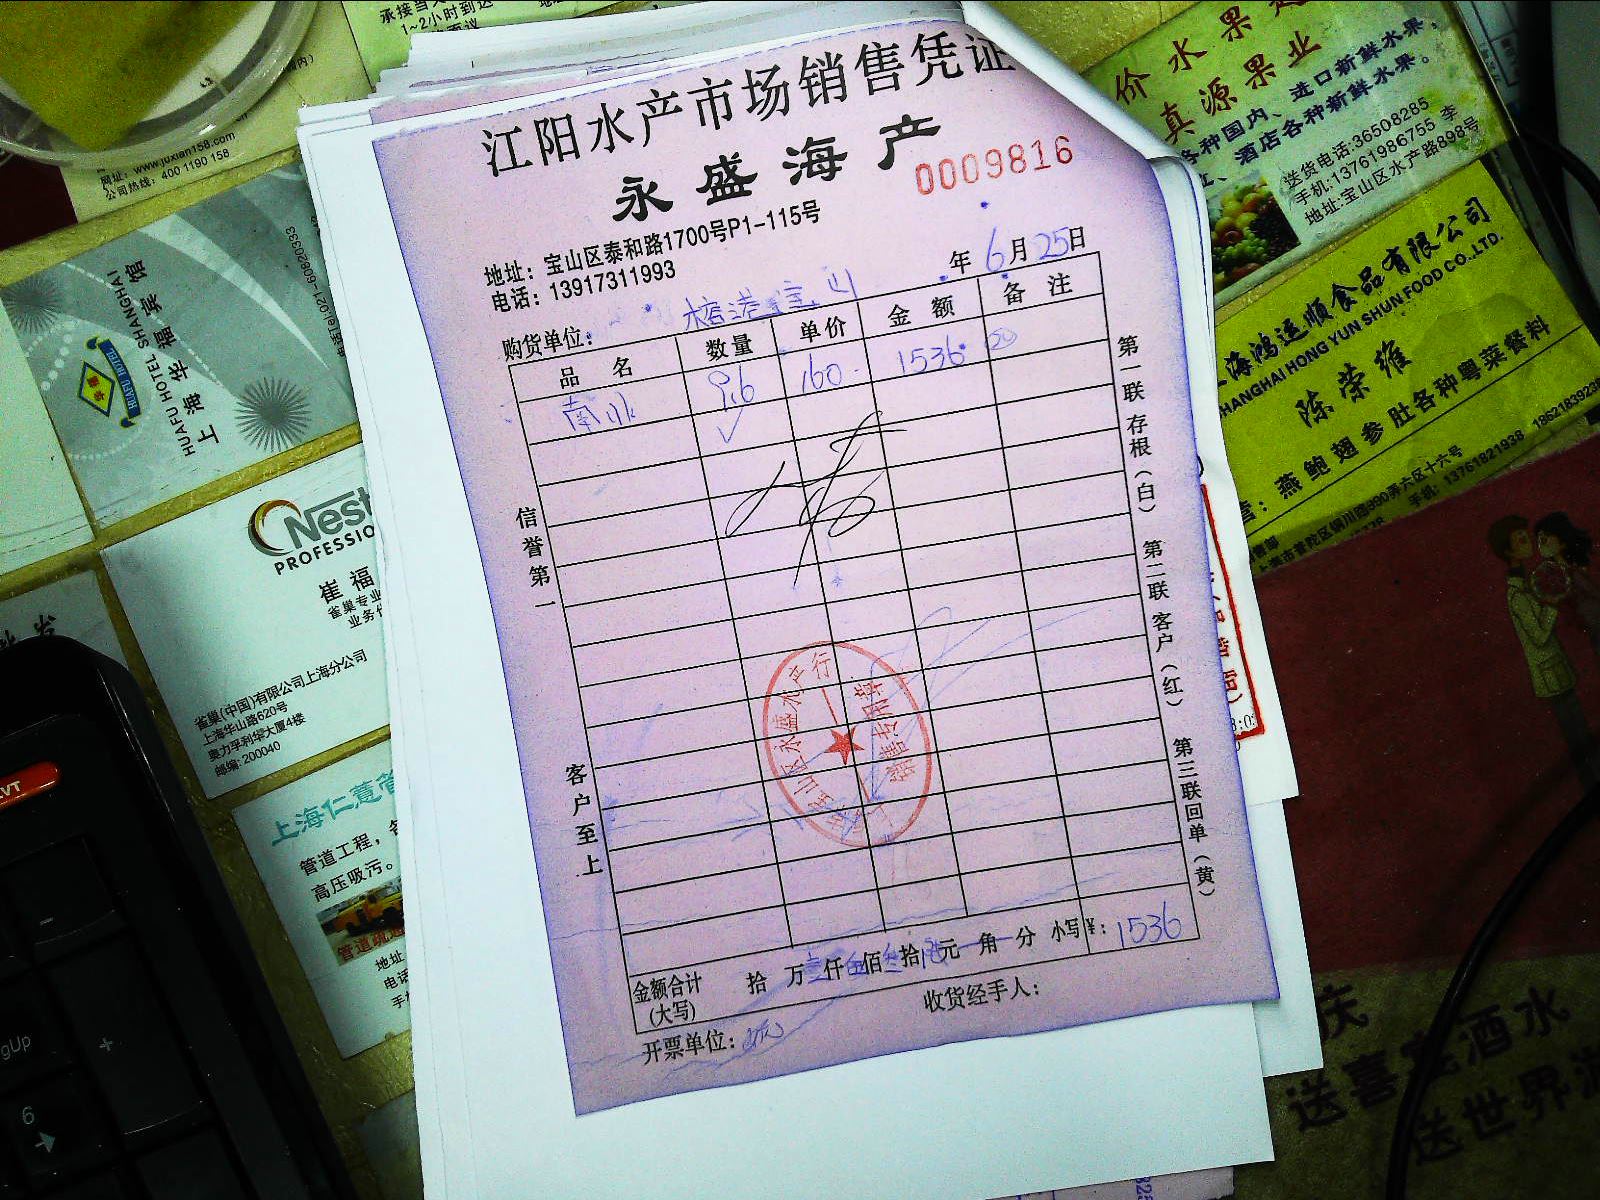 江阳水产市场销售凭证
永盛海产
0009816
地址：宝山区泰和路1700号P1-115号
电话：13917311993
年 6月 25日
购货单位：
品名 数量 单价 金额 备注
9.6 160. 1536.00
信誉第一
客户至上
第一联 存根（白） 第二联 客户（红） 第三联 回单（黄）
宝山区永盛水产行
销售专用章
金额合计（大写） 拾 万 壹仟 伍佰 叁拾 陆元 角 分 小写¥：1536
开票单位：
收货经手人：
1~2小时到达
网址：www.juxian158.com
公司热线：400 1190 158
HUAFU HOTEL SHANGHAI
上海华福宾馆
HUAFU HOTEL
PROFESSIO
崔福
雀巢专业
雀巢(中国)有限公司上海分公司
上海华山路620号
奥力孚利华大厦4楼
邮编：200040
上海仁薏管
管道工程，
高压吸污。
管道疏
地址
电话
价水果
真源果业
各种国内、进口新鲜水果，
酒店各种新鲜水果。
送货电话:36508285
手机:13761986755 李
地址:宝山区水产路898号
上海鸿运顺食品有限公司
SHANGHAI HONG YUN SHUN FOOD CO.,LTD.
陈荣维
营：燕鲍翅参肚各种粤菜餐料
手机：13761821938
庆
送喜宴酒水
送世界
gUp
6